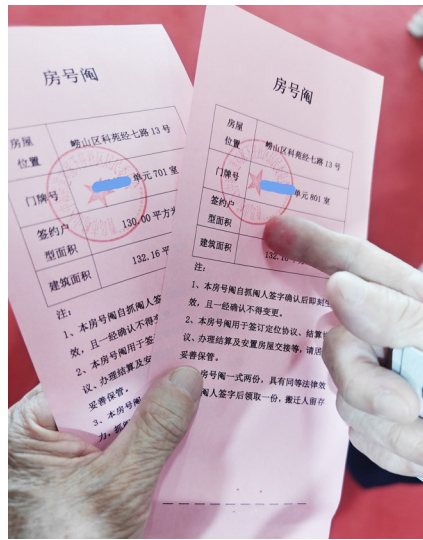 房号阄
房屋
位置
崂山区科苑经七路 13 号
门牌号
单元 701 室
签约户
型面积
130.00 平方
建筑面积
132.16 平
注：
1、本房号阄自抓阄人签
效，且一经确认不得
2、本房号阄用于签
议、办理结算及安
妥善保管。
3、本房号阄
力，抓阄
房号阄
房屋
位置
崂山区科苑经七路 13 号
门牌号
单元 801 室
签约户
型面积
建筑面积
132.16
注：
1、本房号阄自抓阄人签字确认后即刻生
效，且一经确认不得变更。
2、本房号阄用于签订定位协议、结算
议、办理结算及安置房屋交接等，请
妥善保管。
房号阄一式两份，具有同等法律效
人签字后领取一份，搬迁人留存